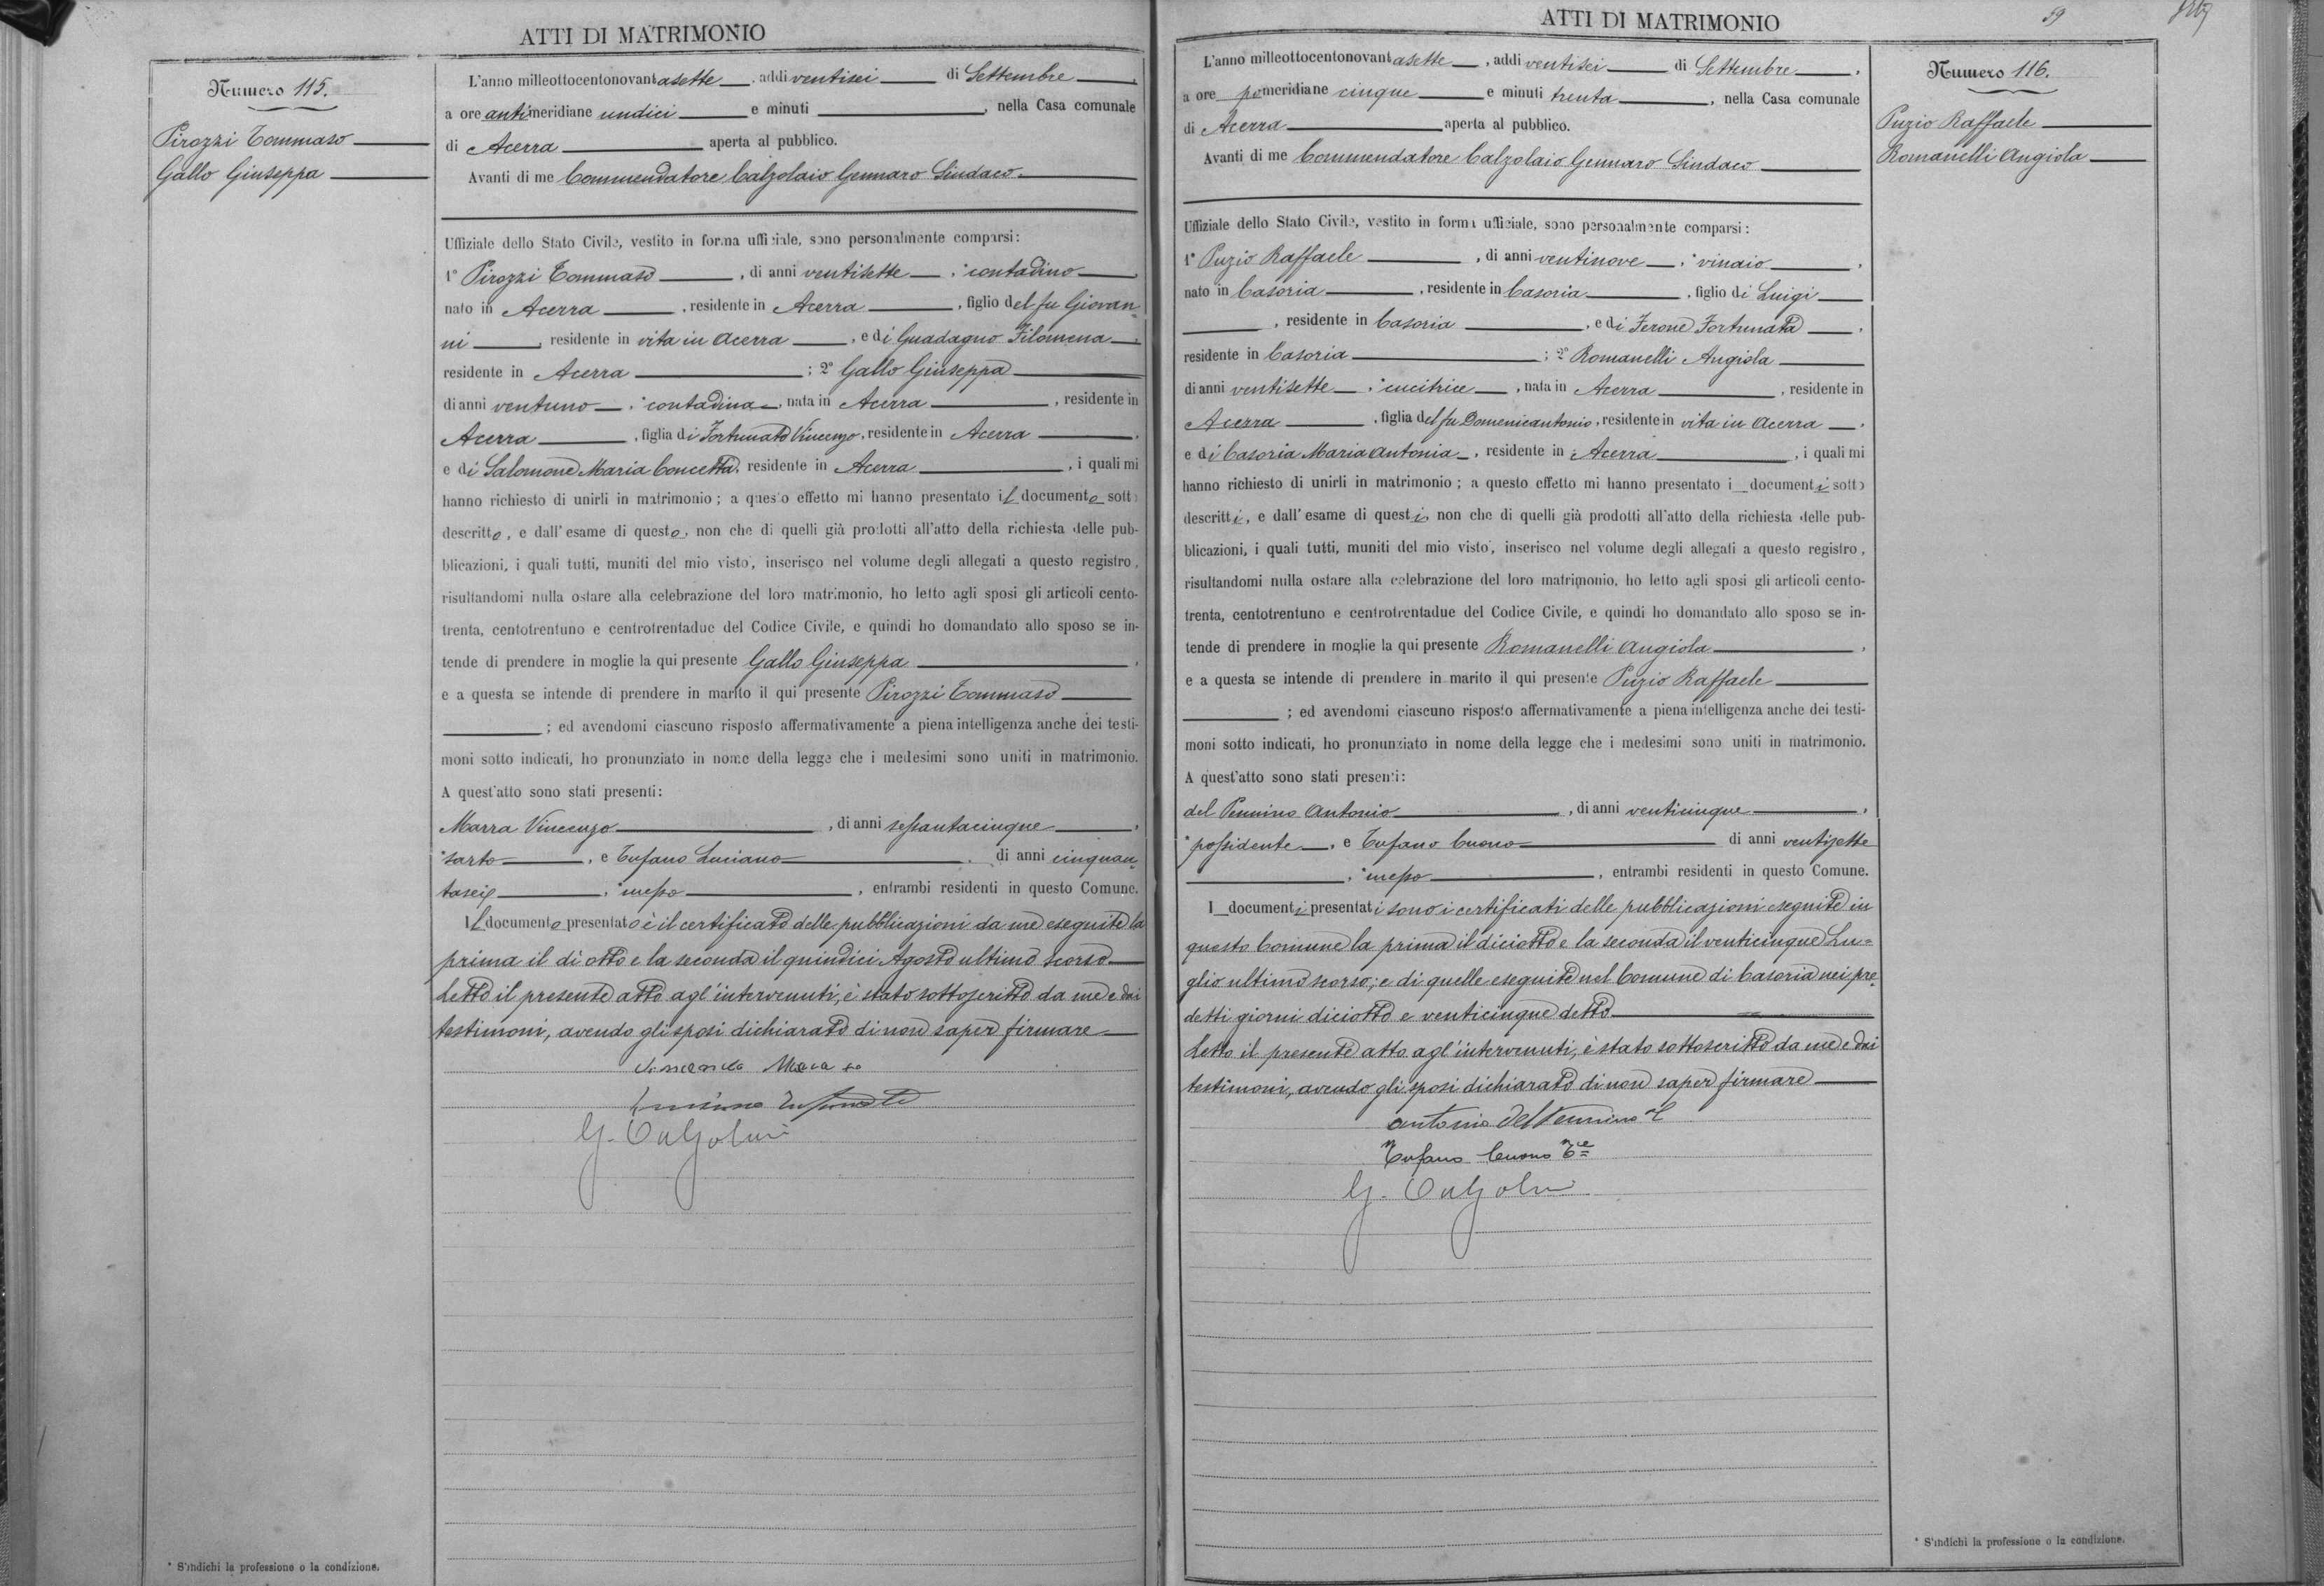 ATTI DI MATRIMONIO
Numero 115.
Pirozzi Tommaso
Gallo Giuseppa
L'anno milleottocentonovantasette, addi ventisei di Settembre,
a ore antimeridiane undici e minuti , nella Casa comunale
di Acerra aperta al pubblico.
Avanti di me Commendatore Calzolaio Gennaro Sindaco
Uffiziale dello Stato Civile, vestito in forma ufficiale, sono personalmente comparsi:
1° Pirozzi Tommaso, di anni ventisette, * contadino,
nato in Acerra, residente in Acerra, figlio del fu Giovan=
ni, residente in vita in Acerra, e di Guadagno Filomena,
residente in Acerra; 2° Gallo Giuseppa
di anni ventuno, * contadina, nata in Acerra, residente in
Acerra, figlia di Fortunato Vincenzo, residente in Acerra,
e di Salomone Maria Concetta, residente in Acerra, i quali mi
hanno richiesto di unirli in matrimonio; a questo effetto mi hanno presentato il documento sotto
descritto, e dall'esame di questo, non che di quelli già prodotti all'atto della richiesta delle pub-
blicazioni, i quali tutti, muniti del mio visto, inserisco nel volume degli allegati a questo registro,
risultandomi nulla ostare alla celebrazione del loro matrimonio, ho letto agli sposi gli articoli cento-
trenta, centotrentuno e centrotrentadue del Codice Civile, e quindi ho domandato allo sposo se in-
tende di prendere in moglie la qui presente Gallo Giuseppa,
e a questa se intende di prendere in marito il qui presente Pirozzi Tommaso
; ed avendomi ciascuno risposto affermativamente a piena intelligenza anche dei testi-
moni sotto indicati, ho pronunziato in nome della legge che i medesimi sono uniti in matrimonio.
A quest'atto sono stati presenti:
Marra Vincenzo, di anni sessantacinque,
* sarto, e Tufano Luciano, di anni cinquan=
tasei, * messo, entrambi residenti in questo Comune.
Il documento presentato è il certificato delle pubblicazioni da me eseguite la
prima il di otto e la seconda il quindici Agosto ultimo scorso
Letto il presente atto agl'intervenuti, è stato sottoscritto da me e dai
testimoni, avendo gli sposi dichiarato di non saper firmare
* S'indichi la professione o la condizione.
ATTI DI MATRIMONIO
59
L'anno milleottocentonovantasette, addi ventisei di Settembre,
a ore pomeridiane cinque e minuti trenta, nella Casa comunale
di Acerra aperta al pubblico.
Avanti di me Commendatore Calzolaio Gennaro Sindaco
Uffiziale dello Stato Civile, vestito in forma ufficiale, sono personalmente comparsi:
1° Puzio Raffaele, di anni ventinove, * vinaio,
nato in Casoria, residente in Casoria, figlio di Luigi
, residente in Casoria, e di Ferone Fortunata,
residente in Casoria; 2° Romanelli Angiola
di anni ventisette, * cucitrice, nata in Acerra, residente in
Acerra, figlia del fu Domenicantonio, residente in vita in Acerra,
e di Casoria Maria Antonia, residente in Acerra, i quali mi
hanno richiesto di unirli in matrimonio; a questo effetto mi hanno presentato i documenti sotto
descritti, e dall'esame di questi, non che di quelli già prodotti all'atto della richiesta delle pub-
blicazioni, i quali tutti, muniti del mio visto, inserisco nel volume degli allegati a questo registro,
risultandomi nulla ostare alla celebrazione del loro matrimonio, ho letto agli sposi gli articoli cento-
trenta, centotrentuno e centrotrentadue del Codice Civile, e quindi ho domandato allo sposo se in-
tende di prendere in moglie la qui presente Romanelli Angiola,
e a questa se intende di prendere in marito il qui presente Puzio Raffaele
; ed avendomi ciascuno risposto affermativamente a piena intelligenza anche dei testi-
moni sotto indicati, ho pronunziato in nome della legge che i medesimi sono uniti in matrimonio.
A quest'atto sono stati presenti:
del Pennino Antonio, di anni venticinque,
* possidente, e Tufano Cuono di anni ventisette
, * messo, entrambi residenti in questo Comune.
I documenti presentati sono i certificati delle pubblicazioni eseguite in
questo Comune la prima il diciotto e la seconda il venticinque Lu=
glio ultimo scorso; e di quelle eseguite nel Comune di Casoria nei pre=
detti giorni diciotto e venticinque detto
Letto il presente atto agl'intervenuti, è stato sottoscritto da me e dai
testimoni, avendo gli sposi dichiarato di non saper firmare
Antonio del Pennino
Tufano Cuono
Numero 116.
Puzio Raffaele
Romanelli Angiola
* S'indichi la professione o la condizione.